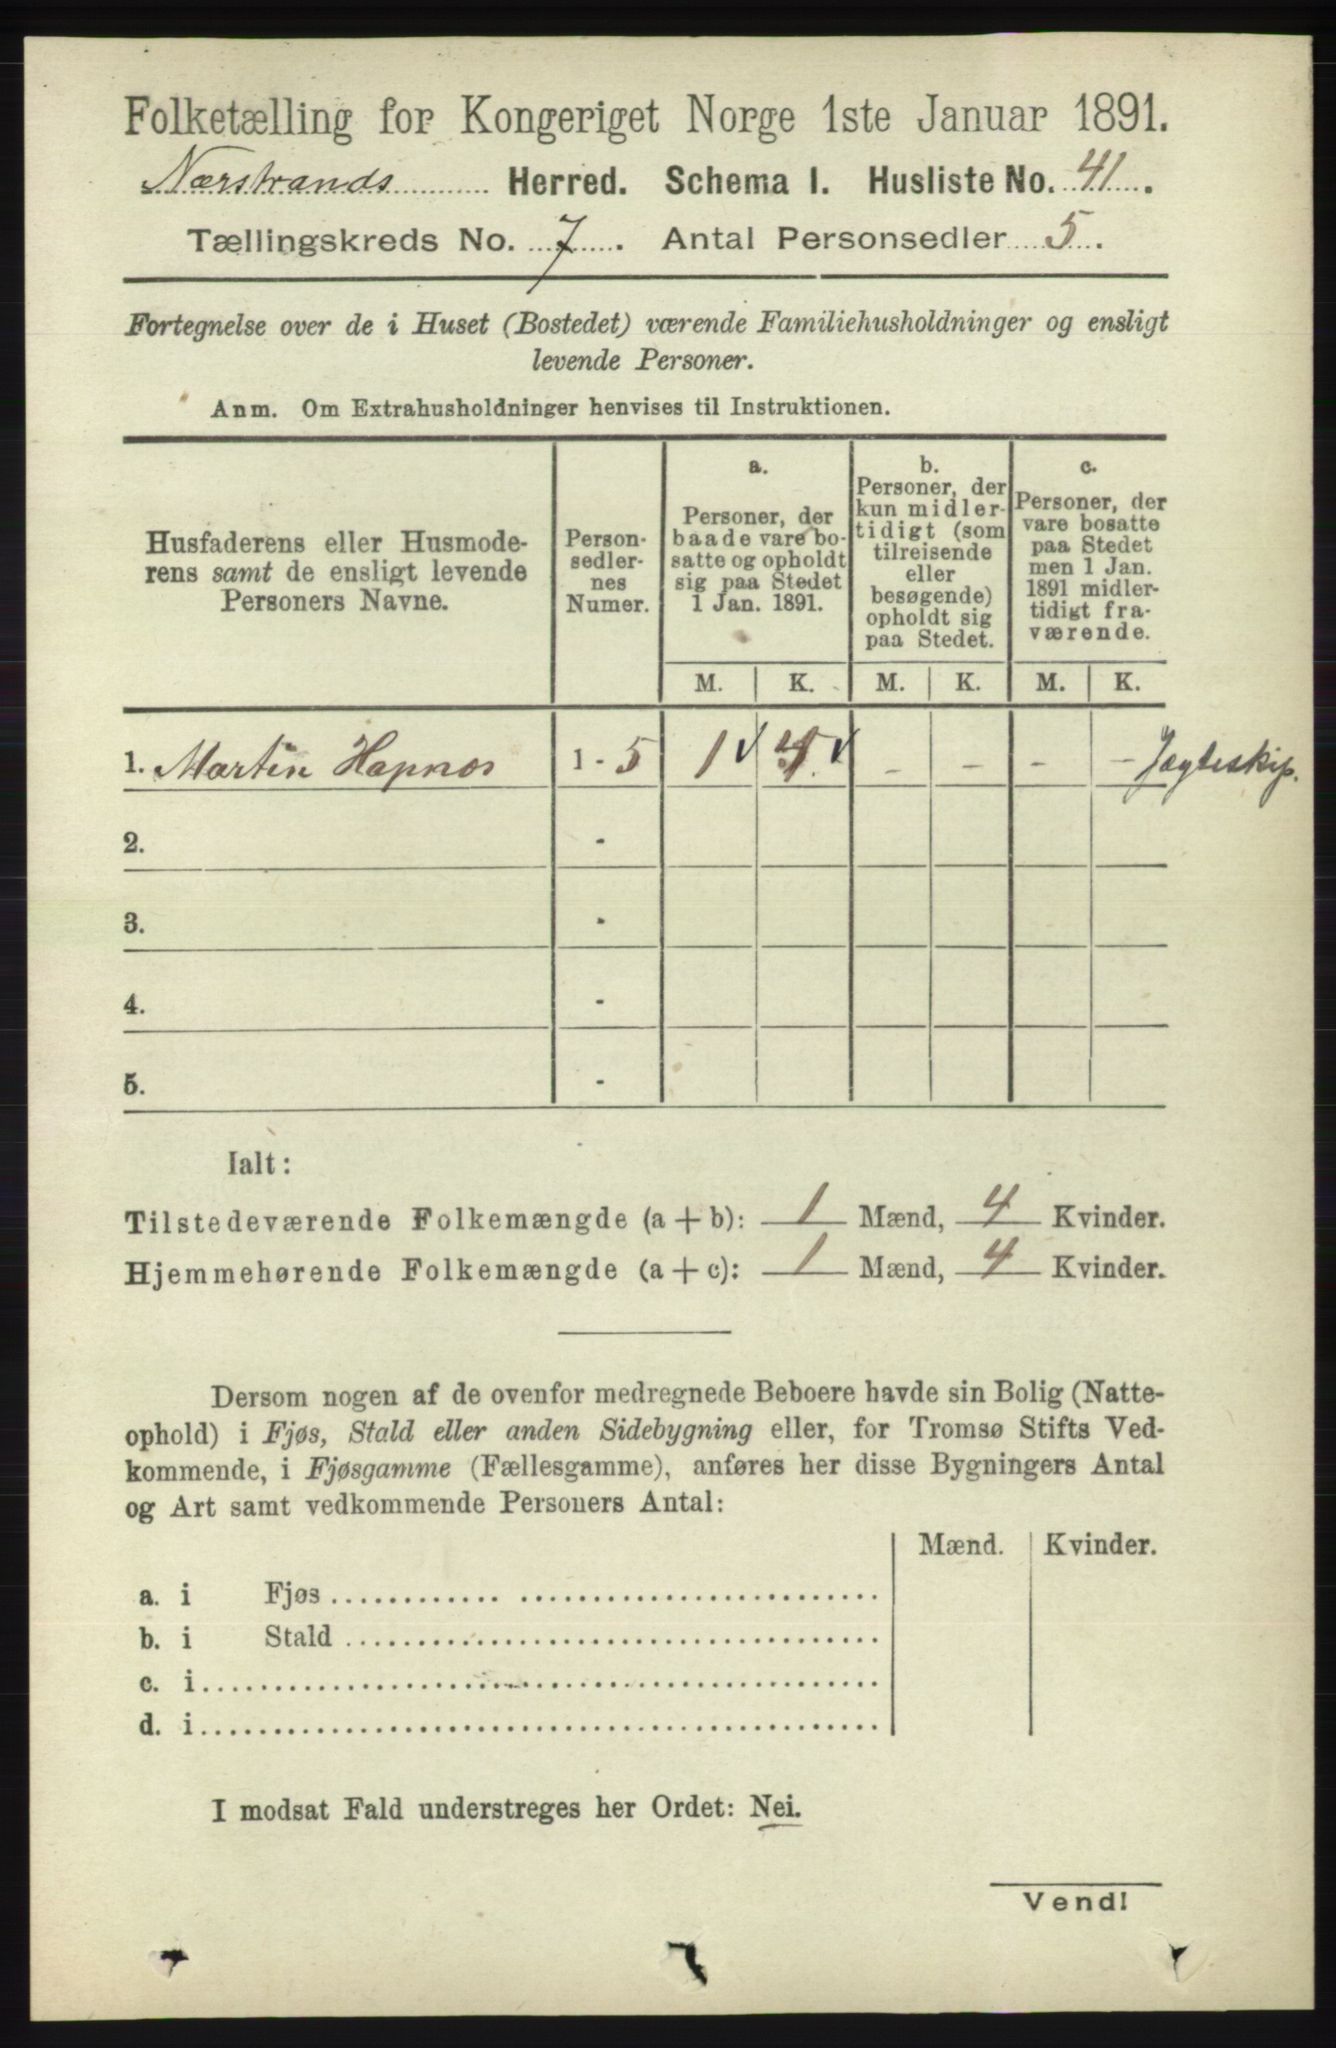 Folketælling for Kongeriget Norge 1ste Januar 1891.
Nærstrands Herred. Schema I. Husliste No. 41.
Tællingskreds No. 7. Antal Personsedler 5.
Fortegnelse over de i Huset (Bostedet) værende Familiehusholdninger og ensligt
levende Personer.
Anm. Om Extrahusholdninger henvises til Instruktionen.
Husfaderens eller Husmode-
rens samt de ensligt levende
Personers Navne.
Person-
sedler-
nes
Numer.
a.
Personer, der
baade vare bo-
satte og opholdt
sig paa Stedet
1 Jan. 1891.
b.
Personer, der
kun midler-
tidigt (som
tilreisende
eller
besøgende)
opholdt sig
paa Stedet.
c.
Personer, der
vare bosatte
paa Stedet
men 1 Jan.
1891 midler-
tidigt fra-
værende.
M. K. M. K. M. K.
1. Martin Hapnes 1 - 5 1 4 - - - - Jægteskip.
2. -
3. -
4. -
5. -
Ialt:
Tilstedeværende Folkemængde (a + b): 1 Mænd, 4 Kvinder.
Hjemmehørende Folkemængde (a + c): 1 Mænd, 4 Kvinder.
Dersom nogen af de ovenfor medregnede Beboere havde sin Bolig (Natte-
ophold) i Fjøs, Stald eller anden Sidebygning eller, for Tromsø Stifts Ved-
kommende, i Fjøsgamme (Fællesgamme), anføres her disse Bygningers Antal
og Art samt vedkommende Personers Antal:
Mænd. Kvinder.
a. i Fjøs
b. i Stald
c. i
d. i
I modsat Fald understreges her Ordet: Nei.
Vend!